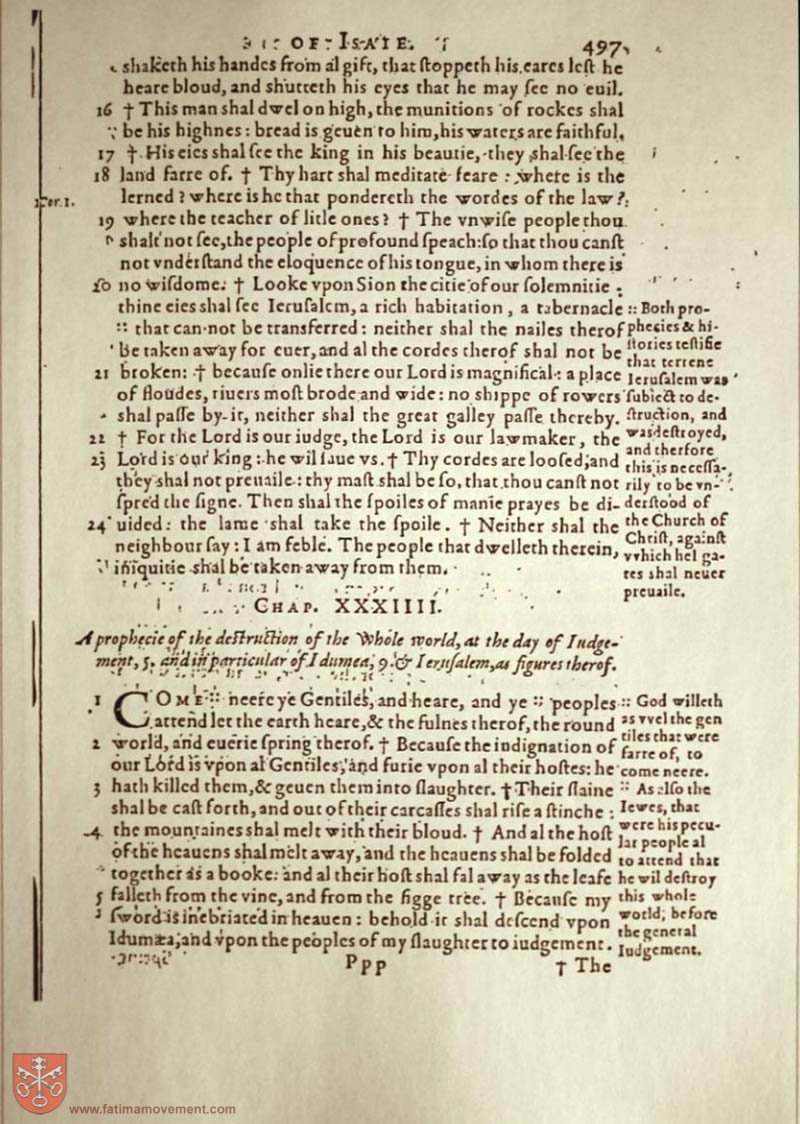 OF ISAIE. 497
shaketh his handes from al gift, that stoppeth his eares lest he
heare bloud, and shutteth his eyes that he may see no euil.
16 † This man shal dwel on high, the munitions of rockes shal
be his highnes: bread is geuen to him, his waters are faithful.
17 † His eies shal see the king in his beautie, they shal see the
18 land farre of. † Thy hart shal meditate feare: where is the
1. Cor. 1.
lerned? where is he that pondereth the wordes of the law?
19 where the teacher of litle ones? † The vnwise people thou
shalt not see, the people of profound speach: so that thou canst
not vnderstand the eloquence of his tongue, in whom there is
20 no wisdome. † Looke vpon Sion the citie of our solemnitie:
thine eies shal see Ierusalem, a rich habitation, a tabernacle
:: that can not be transferred: neither shal the nailes therof
be taken away for euer, and al the cordes therof shal not be
21 broken: † because onlie there our Lord is magnifical: a place
of floudes, riuers most brode and wide: no shippe of rowers
shal passe by it, neither shal the great galley passe thereby.
22 † For the Lord is our iudge, the Lord is our lawmaker, the
23 Lord is our king: he wil saue vs. † Thy cordes are loosed, and
they shal not preuaile: thy mast shal be so, that thou canst not
spred the signe. Then shal the spoiles of manie prayes be di-
24 uided: the lame shal take the spoile. † Neither shal the
neighbour say: I am feble. The people that dwelleth therein,
iniquitie shal be taken away from them.
:: Both pro-
phecies & hi-
stories testifie
that terrene
Ierusalem was
subiect to de-
struction, and
was destroyed,
and therfore
this is necessa-
rily to be vn-
derstood of
the Church of
Christ, against
vvhich hel ga-
tes shal neuer
preuaile.
CHAP. XXXIIII.
A prophecie of the destruction of the whole world, at the day of Iudge-
ment, 5. and in particular of Idumea, 9. & Ierusalem, as figures therof.
1 COME :: neere ye Gentiles, and heare, and ye :: peoples
attend let the earth heare, & the fulnes therof, the round
2 world, and euerie spring therof. † Because the indignation of
our Lord is vpon al Gentiles, and furie vpon al their hostes: he
3 hath killed them, & geuen them into slaughter. † Their slaine
shal be cast forth, and out of their carcasses shal rise a stinche:
4 the mountaines shal melt with their bloud. † And al the host
of the heauens shal melt away, and the heauens shal be folded
together as a booke: and al their host shal fal away as the leafe
5 falleth from the vine, and from the figge tree. † Because my
sword is inebriated in heauen: behold it shal descend vpon
Idumæa, and vpon the peoples of my slaughter to iudgement.
:: God willeth
as vvel the gen
tiles that were
farre of, to
come neere.
:: As also the
Iewes, that
were his pecu-
lar people al
to attend that
he wil destroy
this whole
world, before
the general
Iudgement.
Ppp † The
www.fatimamovement.com